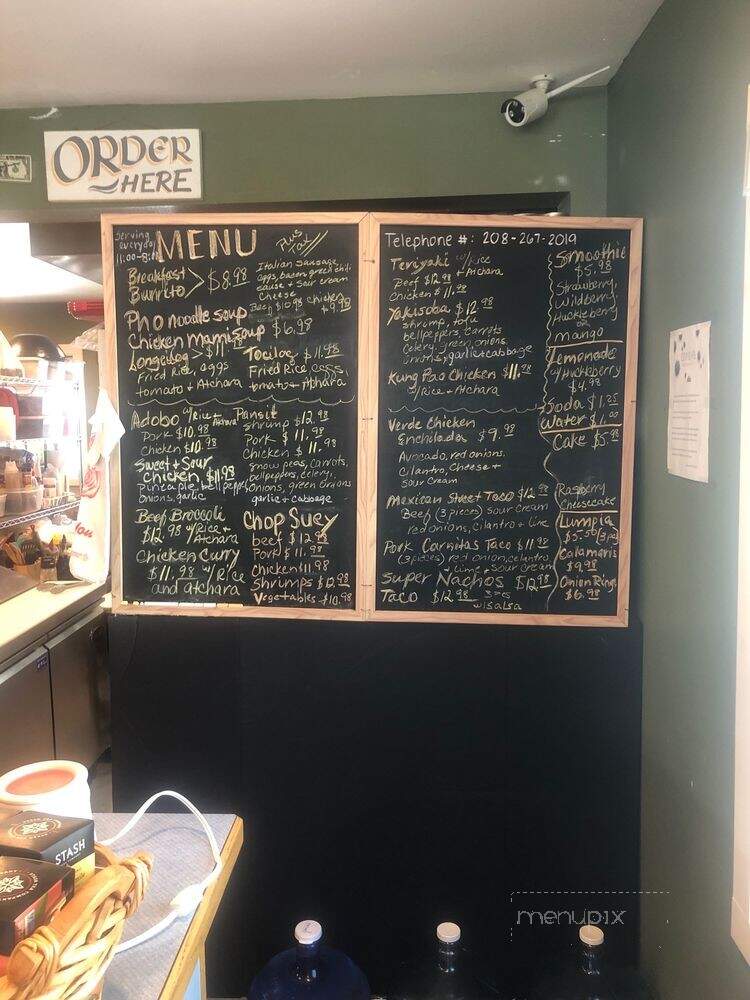 ORDER
HERE
Serving
everyday
11:00-8:00
MENU
Plus
Tax
Breakfast
Burrito
$8.98
Italian Sausage
eggs, bacon, green chili
sauce & sour cream
Cheese
Beef $10.98 chicken
Pho noodle soup
Chicken mami soup $6.98
Longsilog
Fried Rice, eggs
tomato & Atchara
Tocilog $11.48
Fried Rice, eggs,
tomato & Atchara
Adobo w/Rice &
Atchara
Pork $10.98
chicken $10.98
Sweet & Sour
chicken $11.98
Pineaple, bellpepper
onions, garlic
Beef Broccoli
$12.98 w/Rice &
Atchara
Chicken Curry
$11.98 w/Rice
and atchara
Pansit
Shrimp $12.98
Pork $11.98
Chicken $11.98
snow peas, carrots,
bellpeppers, celery,
onions, green onions
garlic & cabbage
Chop Suey
beef $12.98
Pork $11.98
Chicken 11.98
shrimps $12.98
Vegetables $10.98
Telephone #: 208-267-2019
Teriyaki w/Rice
& Atchara
Beef $12.98
Chicken $11.98
Yakisoba $12.98
shrimp, tofu
bellpeppers, carrots
Celery, green onions,
Onions, garlic & cabbage
Kung Pao Chicken $11.98
w/Rice & Atchara
Verde Chicken
Enchilada $9.98
Avocado, red onions,
Cilantro, Cheese &
sour cream
Mexican Street Taco $12.98
Beef (3 pieces) sour cream
red onions, cilantro & lime
Pork Carnitas Taco $11.98
(3 pieces) red onion, cilantro
& lime & sour cream
Super Nachos $12.98
Taco $12.98 3 pcs
w/salsa
Smoothie
$5.98
Strawberry,
Wildberry,
Huckleberry
or
mango
Lemonade
w/Huckleberry
$4.98
Soda $1.25
Water $1.00
Cake $5.98
Raspberry
Cheesecake
Lumpia
$5.50 (3pc)
Calamaris
$9.98
Onion Rings
$6.98
STASH
menupix